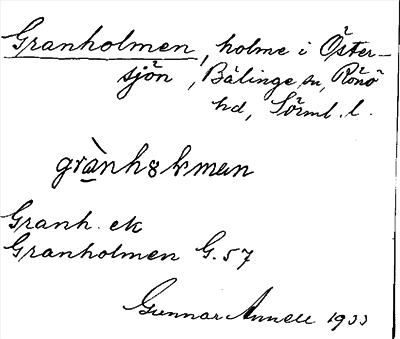 Granholmen, holme i Öster-
sjön, Bälinge sn, Rönö
hd, Sörml. l.
grành8lman
Granh. ek
Granholmen G. 57
Gunnar Annell 1933